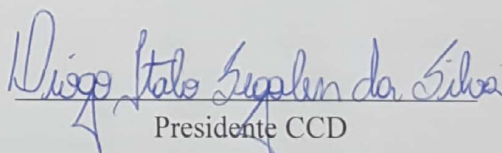 Diogo Italo Segalen da Silva
Presidente CCD